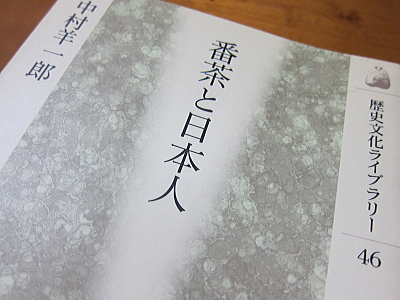 番茶と日本人
中村羊一郎
歴史文化ライブラリー
46